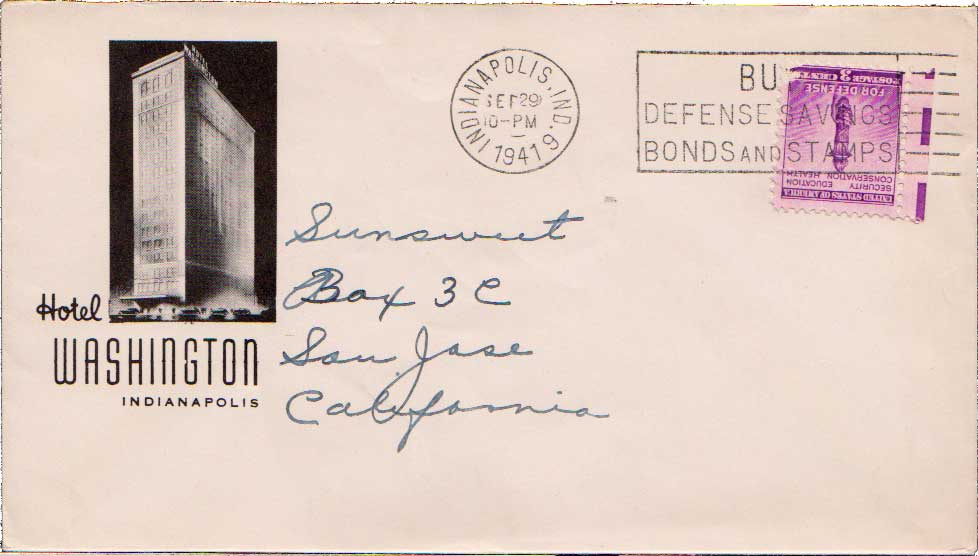 INDIANAPOLIS, IND. 9
SEP 29
10-PM
1941
BU
DEFENSE SAVINGS
BONDS AND STAMPS
POSTAGE 3 CENTS
FOR DEFENSE
SECURITY EDUCATION
CONSERVATION HEALTH
UNITED STATES OF AMERICA
Sunsweet
Box 3 C
San Jose
California
Hotel
WASHINGTON
INDIANAPOLIS